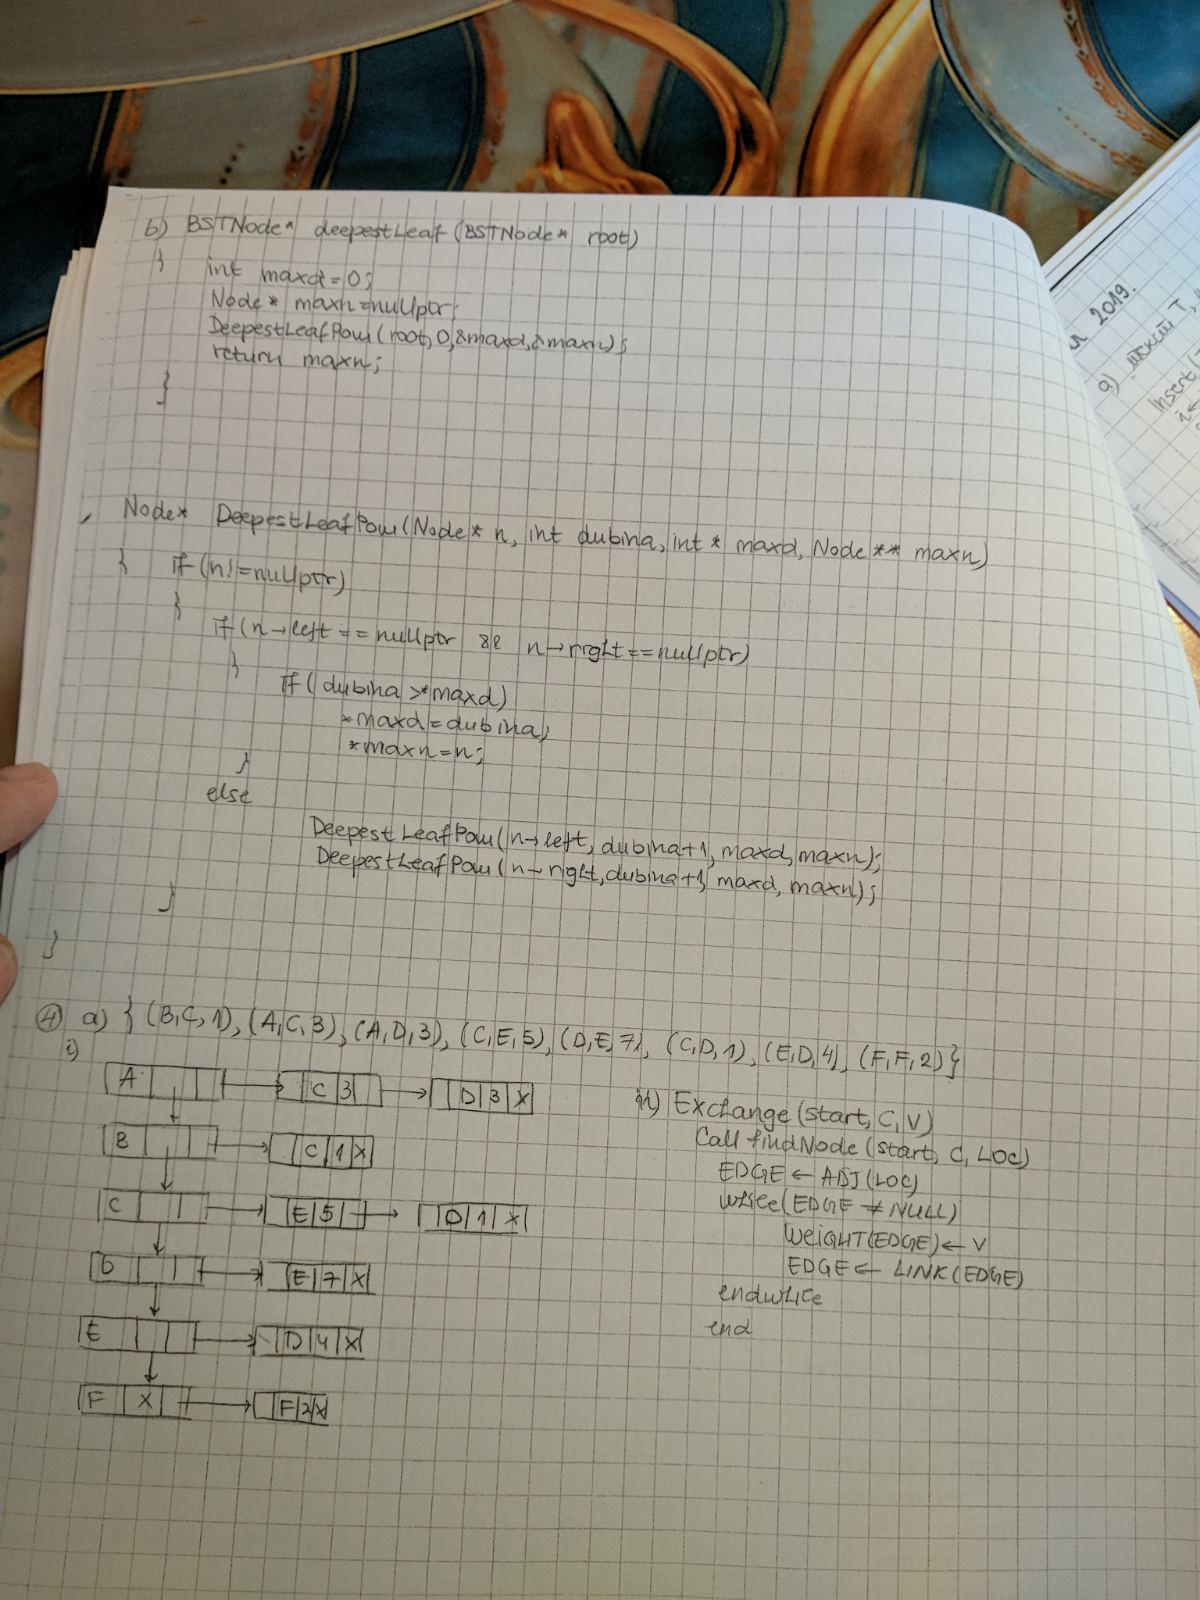 b) BSTNode* deepestLeaf (BSTNode* root)
{ int maxd=0;
Node* maxn=nullptr;
DeepestLeafPom(root,0,&maxd,&maxn);
return maxn;
}
Node* DeepestLeafPom(Node* n, int dubina, int* maxd, Node** maxn)
{ if(n!=nullptr)
{
if(n→left==nullptr && n→right==nullptr)
{
if(dubina>*maxd)
*maxd=dubina;
*maxn=n;
}
else
DeepestLeafPom(n→left, dubina+1, maxd, maxn);
DeepestLeafPom(n→right, dubina+1, maxd, maxn);
}
}
4 a) {(B,C,1), (A,C,3), (A,D,3), (C,E,5), (D,E,7), (C,D,1), (E,D,4), (F,F,2)}
i)
A C 3 D 3 X
B C 1 X
C E 5 D 1 X
D E 7 X
E D 4 X
F X F 2 X
ii) Exchange(start, C, V)
Call findNode(start, C, LOC)
EDGE ← ADJ(LOC)
while(EDGE ≠ NULL)
WEIGHT(EDGE) ← V
EDGE ← LINK(EDGE)
endwhile
end
2019.
a)
Insert